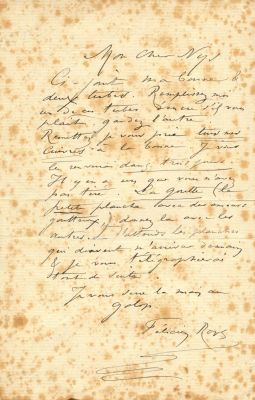 Mon cher Nys
Ci joint ma bonne &
deux tubes. Remplissez moi
un de ces tubes d'encre s'il vous
plait gardez l'autre
Remettez je vous prie tous mes
cuivres à la bonne. Je vous
le renverrai dans trois jours
Il y en a un que vous n'avez
pas tiré. La Grette (la
petite planche
donnez la avec les
autres. J'attends les planches
qui doivent m'arriver demain
& je vous télégraphierai
tout de suite.
Je vous serre la main au
galop
Félicien Rops